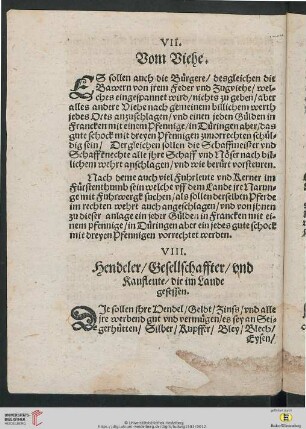 VII.
Vom Viehe.
ES sollen auch die Bürgere/ desgleichen die
Bawern von jrem Feder vnd Zugviehe/ wel-
ches eingespannet wird/ nichts zu geben/ aber
alles andere Viehe nach gemeinem billichem werth
jedes Orts anzuschlagen/ vnd einen jeden Gülden in
Francken mit einem Pfennige/ in Düringen aber/ das
gute schock mit dreyen Pfennigen zuuorrechten schül-
dig sein/ Dergleichen sollen die Schaffmeister vnd
Schaffknechte alle jhre Schaff vnd Nöser nach bil-
lichem wehrt anschlagen/ vnd wie beuor vorsteuren.
Nach deme auch viel Fuhrleute vnd Kerner im
Fürstenthumb sein welche vff dem Lande jre Narun-
ge mit Fuhrwergk suchen/ als sollen derselben Pferde
im rechten wehrt auch angeschlagen/ vnd von jhnen
zu dieser anlage ein jeder Gülden in Francken mit ei-
nem pfennige/ in Düringen aber ein jedes gute schock
mit dreyen Pfennigen vorrechtet werden.
VIII.
Hendeler/ Gesellschaffter/ vnd
Kauffleute/ die im Lande
gesessen.
DIe sollen jhre Hendel/ Geldt/ Zinß/ vnd alle
jre werbend gut vnd vermügen/ es sey an Sei-
gerhütten/ Silber/ Kupffer/ Bley/ Blech/
Eysen/
UNIVERSITÄTS-
BIBLIOTHEK
HEIDELBERG
© Universitätsbibliothek Heidelberg